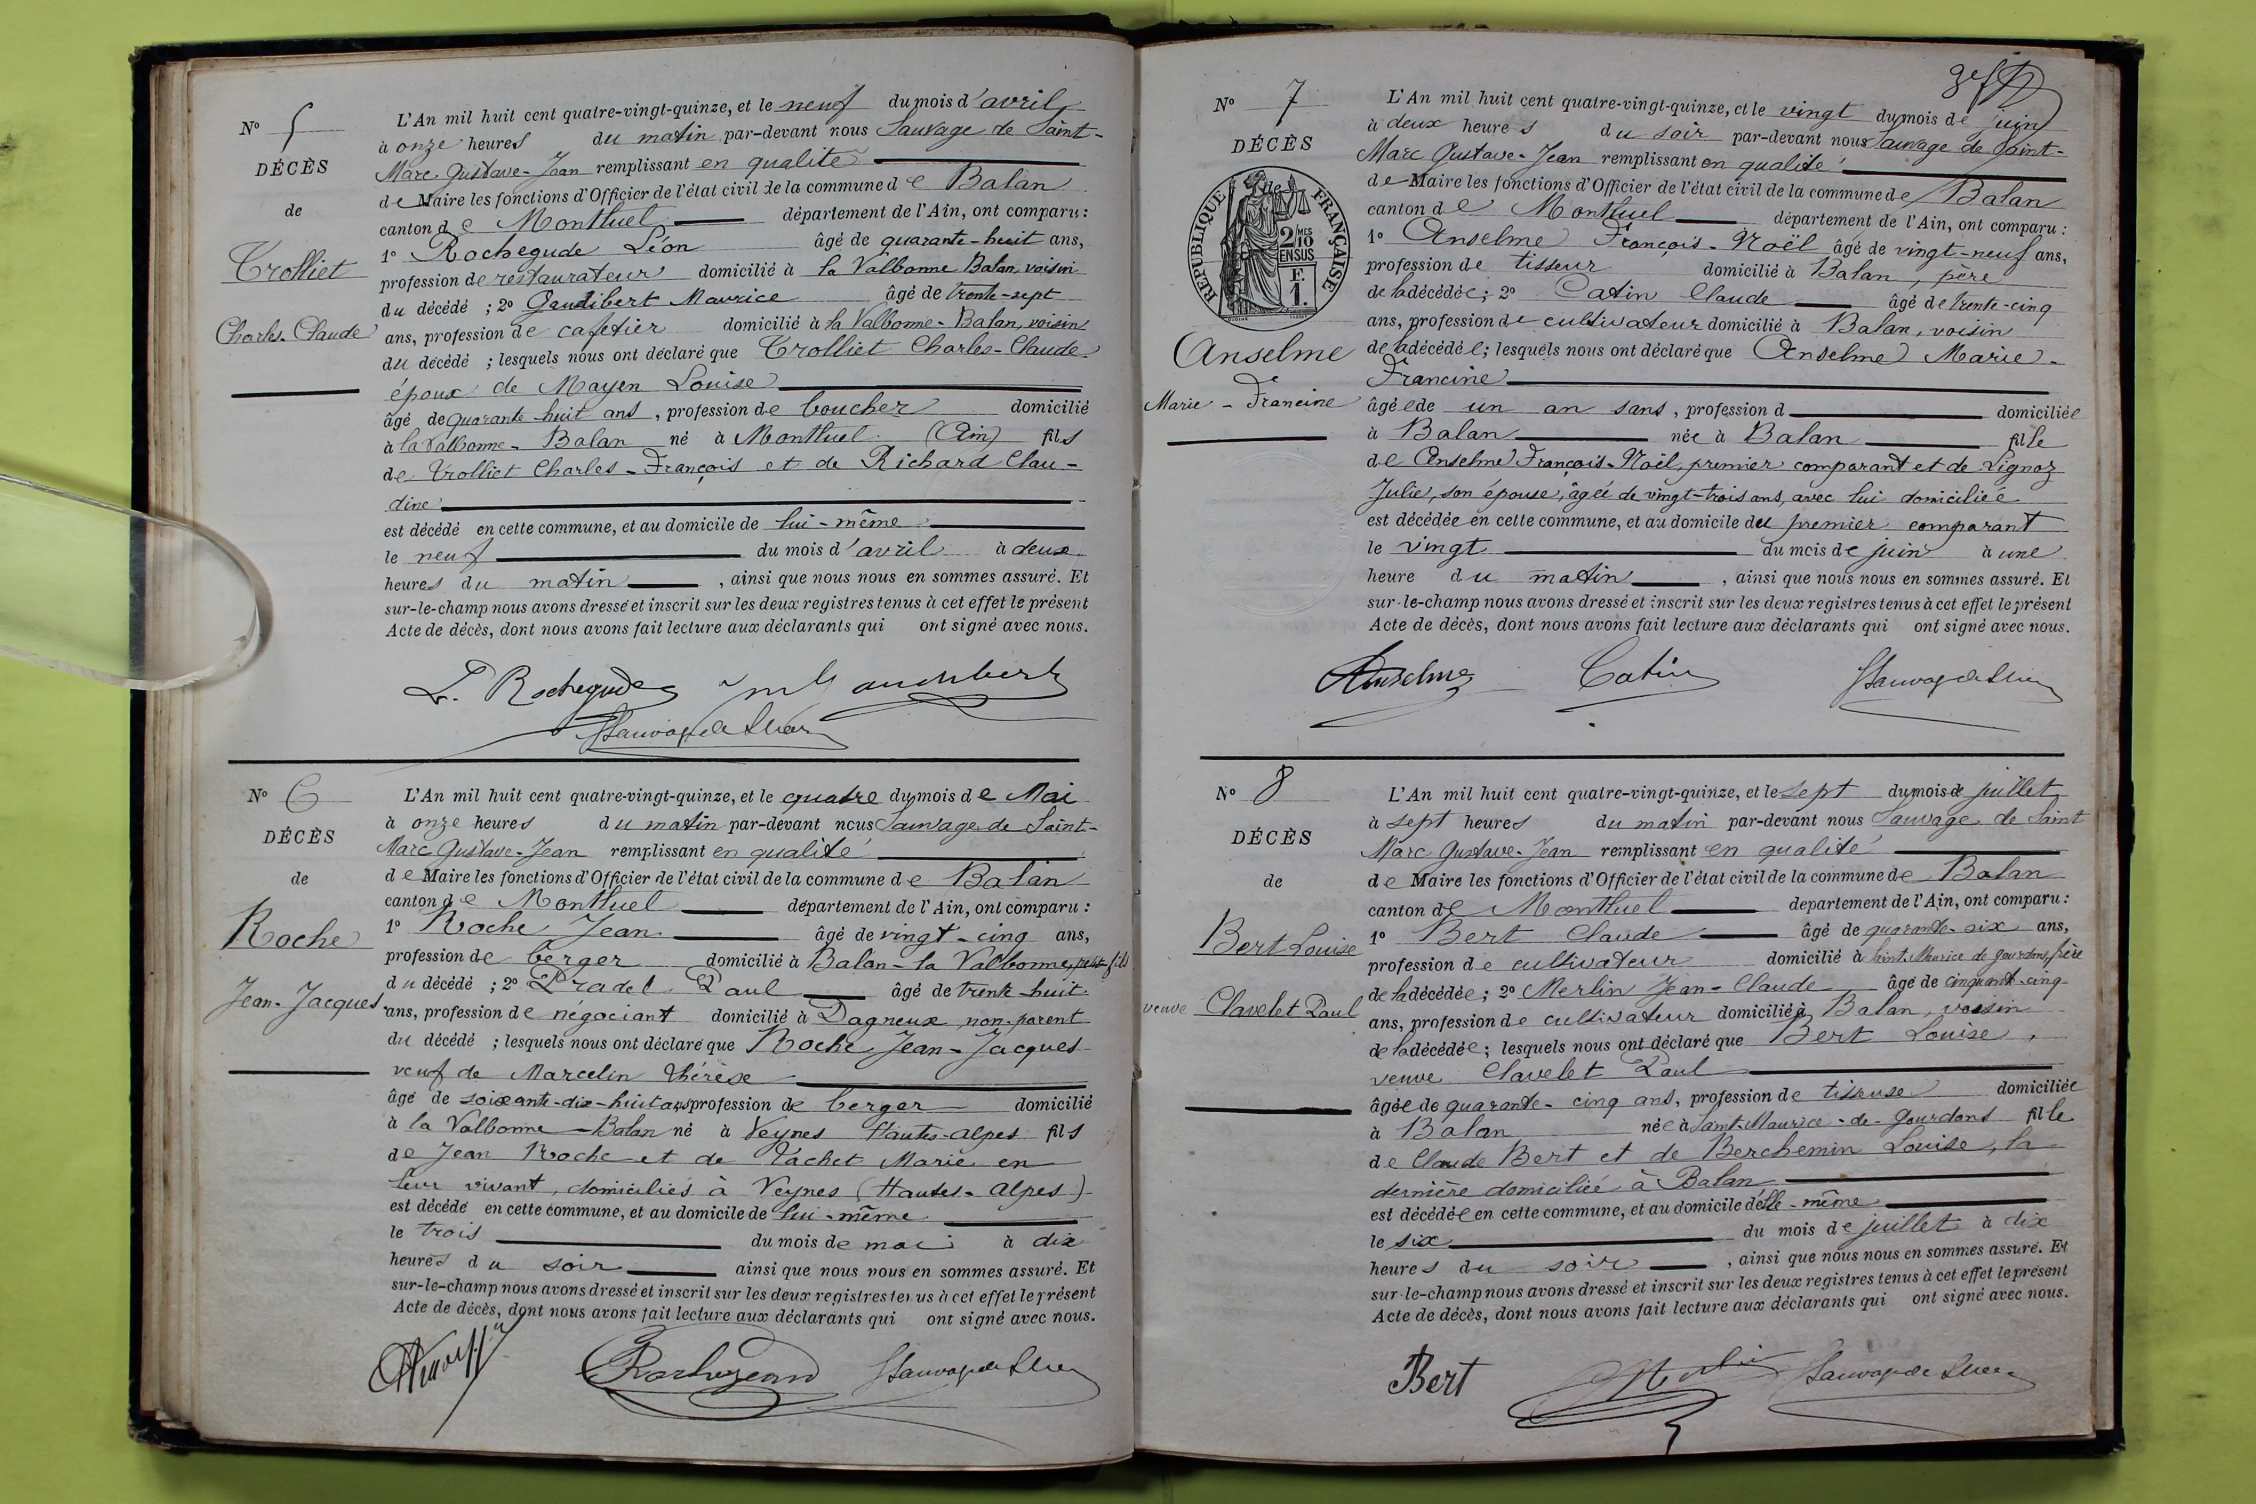 N° 5
DÉCÈS
de
Trolliet
Charles-Claude
L'An mil huit cent quatre-vingt-quinze, et le neuf du mois d'avril
à onze heures du matin par-devant nous Sauvage de Saint-
Marc Gustave-Jean remplissant en qualité
de Maire les fonctions d'Officier de l'état civil de la commune de Balan
canton de Montluel département de l'Ain, ont comparu :
1° Rochegude Léon âgé de quarante-huit ans,
profession de restaurateur domicilié à la Valbonne Balan, voisin
du décédé ; 2° Gaudibert Maurice âgé de trente-sept
ans, profession de cafetier domicilié à la Valbonne-Balan, voisin
du décédé ; lesquels nous ont déclaré que Trolliet Charles-Claude
époux de Mayen Louise
âgé de quarante-huit ans, profession de boucher domicilié
à la Valbonne-Balan né à Montluel (Ain) fils
de Trolliet Charles-François et de Richard Clau-
dine
est décédé en cette commune, et au domicile de lui-même
le neuf du mois d'avril à deux
heures du matin, ainsi que nous nous en sommes assuré. Et
sur-le-champ nous avons dressé et inscrit sur les deux registres tenus à cet effet le présent
Acte de décès, dont nous avons fait lecture aux déclarants qui ont signé avec nous.
L. Rochegude
N° 6
DÉCÈS
de
Roche
Jean-Jacques
L'An mil huit cent quatre-vingt-quinze, et le quatre du mois de Mai
à onze heures du matin par-devant nous Sauvage de Saint-
Marc Gustave-Jean remplissant en qualité
de Maire les fonctions d'Officier de l'état civil de la commune de Balan
canton de Montluel département de l'Ain, ont comparu :
1° Roche Jean âgé de vingt-cinq ans,
profession de berger domicilié à Balan-la Valbonne, petit fils
du décédé ; 2° Pradel Paul âgé de trente-huit
ans, profession de négociant domicilié à Dagneux non-parent
du décédé ; lesquels nous ont déclaré que Roche Jean-Jacques
veuf de Marcelin Thérèse
âgé de soixante-dix-huit ans, profession de berger domicilié
à la Valbonne-Balan né à Veynes Hautes-Alpes fils
de Jean Roche et de Pachet Marie en
leur vivant, domiciliés à Veynes (Hautes-Alpes)
est décédé en cette commune, et au domicile de lui-même
le trois du mois de mai à dix
heures du soir ainsi que nous nous en sommes assuré. Et
sur-le-champ nous avons dressé et inscrit sur les deux registres tenus à cet effet le présent
Acte de décès, dont nous avons fait lecture aux déclarants qui ont signé avec nous.
N° 7
DÉCÈS
de
RÉPUBLIQUE FRANÇAISE
2 MES
10
EN SUS
F.
1.
Anselme
Marie-Francine
L'An mil huit cent quatre-vingt-quinze, et le vingt du mois de juin
à deux heures du soir par-devant nous Sauvage de Saint-
Marc Gustave-Jean remplissant en qualité
de Maire les fonctions d'Officier de l'état civil de la commune de Balan
canton de Montluel département de l'Ain, ont comparu :
1° Anselme François-Noël âgé de vingt-neuf ans,
profession de tisseur domicilié à Balan, père
de la décédée ; 2° Catin Claude âgé de trente-cinq
ans, profession de cultivateur domicilié à Balan, voisin
de la décédée ; lesquels nous ont déclaré que Anselme Marie-
Francine
âgée de un an sans, profession d domiciliée
à Balan née à Balan fille
de Anselme François-Noël, premier comparant et de Lignoz
Julie, son épouse, âgée de vingt-trois ans, avec lui domiciliée
est décédée en cette commune, et au domicile du premier comparant
le vingt du mois de juin à une
heure du matin, ainsi que nous nous en sommes assuré. Et
sur-le-champ nous avons dressé et inscrit sur les deux registres tenus à cet effet le présent
Acte de décès, dont nous avons fait lecture aux déclarants qui ont signé avec nous.
Anselme Catin
N° 8
DÉCÈS
de
Bert Louise
veuve Clavelet Paul
L'An mil huit cent quatre-vingt-quinze, et le sept du mois de juillet
à sept heures du matin par-devant nous Sauvage de Saint
Marc Gustave-Jean remplissant en qualité
de Maire les fonctions d'Officier de l'état civil de la commune de Balan
canton de Montluel département de l'Ain, ont comparu :
1° Bert Claude âgé de quarante-six ans,
profession de cultivateur domicilié à Saint-Maurice de Gourdans, frère
de la décédée ; 2° Merlin Jean-Claude âgé de cinquante-cinq
ans, profession de cultivateur domicilié à Balan, voisin
de la décédée ; lesquels nous ont déclaré que Bert Louise,
veuve Clavelet Paul
âgée de quarante-cinq ans, profession de tisseuse domiciliée
à Balan née à Saint-Maurice-de-Gourdans fille
de Claude Bert et de Berchemin Louise, la
dernière domiciliée à Balan
est décédée en cette commune, et au domicile d'elle-même
le six du mois de juillet à dix
heures du soir, ainsi que nous nous en sommes assuré. Et
sur-le-champ nous avons dressé et inscrit sur les deux registres tenus à cet effet le présent
Acte de décès, dont nous avons fait lecture aux déclarants qui ont signé avec nous.
Bert